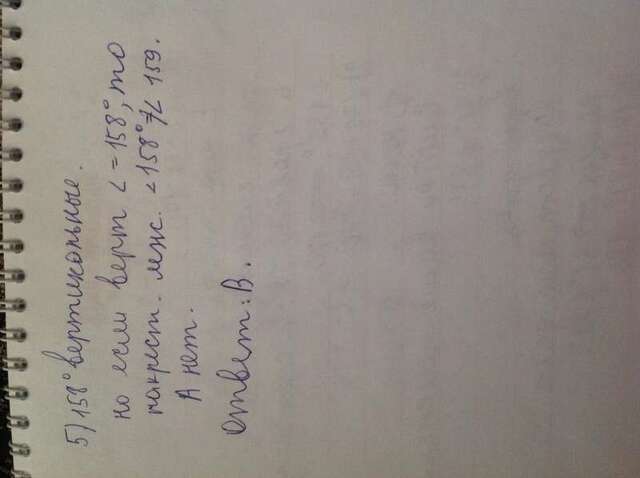 5) 158° вертикольные.
но если верт ∠ = 158°, то
накрест. леж. ∠158° ≠ ∠ 159.
А нет.
Ответ: В.